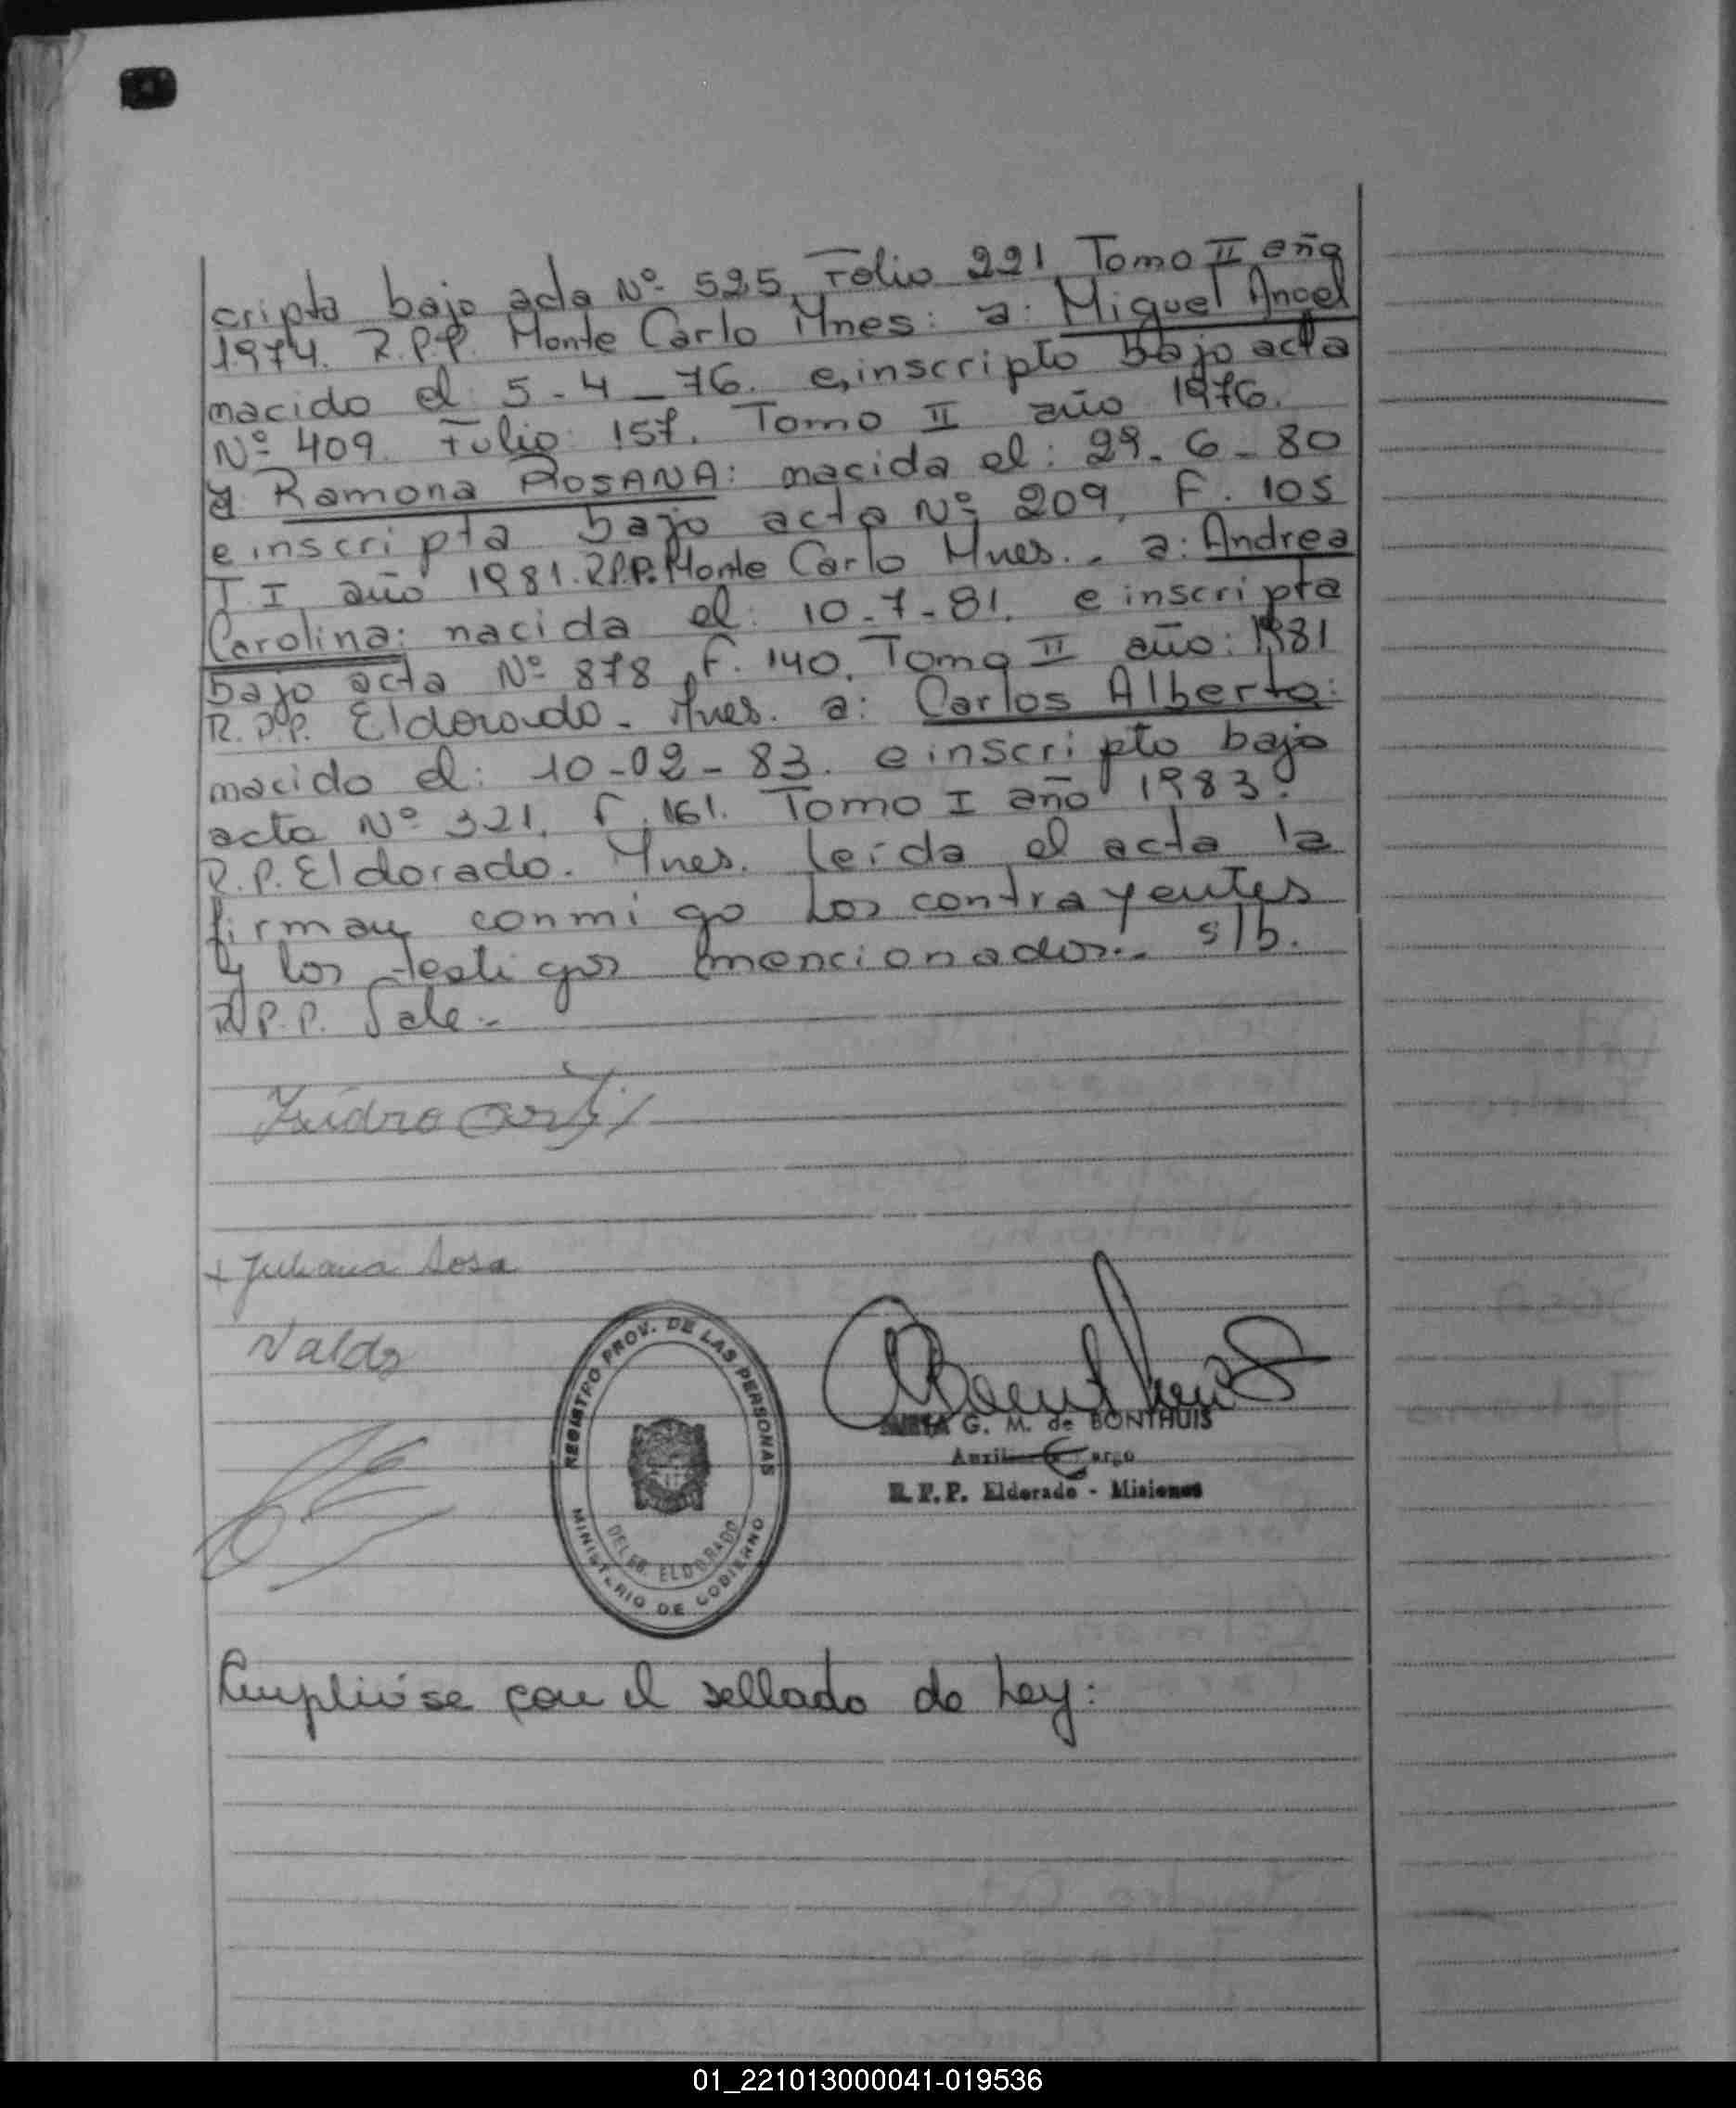 cripta bajo acta Nº 525, Folio 221 Tomo II año
1974. R.P.P. Monte Carlo Mnes: a: Miguel Angel
nacido el: 5-4-76. e inscripto bajo acta
Nº 409. Folio: 157. Tomo II año 1976.
a Ramona ROSANA: nacida el: 29-6-80
e inscripta bajo acta Nº 209, F. 105
T. I año 1981. R.P.P. Monte Carlo Mnes. - a: Andrea
Carolina: nacida el: 10-7-81. e inscripta
bajo acta Nº 878, F. 140, Tomo II año: 1981
R.P.P. Eldorado - Mnes. a: Carlos Alberto:
nacido el: 10-02-83. e inscripto bajo
acta Nº 321, F. 161. Tomo I año 1983.
R.P. Eldorado. Mnes. Leída el acta la
firman conmigo los contrayentes
y los testigos mencionados.- s/b.
R.P.P. Vale.-
Juliana Sosa
Valdo
REGISTRO PROV. DE LAS PERSONAS
DELEG. ELDORADO
MINISTERIO DE GOBIERNO
G. M. de BONTHUIS
R.P.P. Eldorado - Misiones
Cumplióse con el sellado de Ley:
01_221013000041-019536